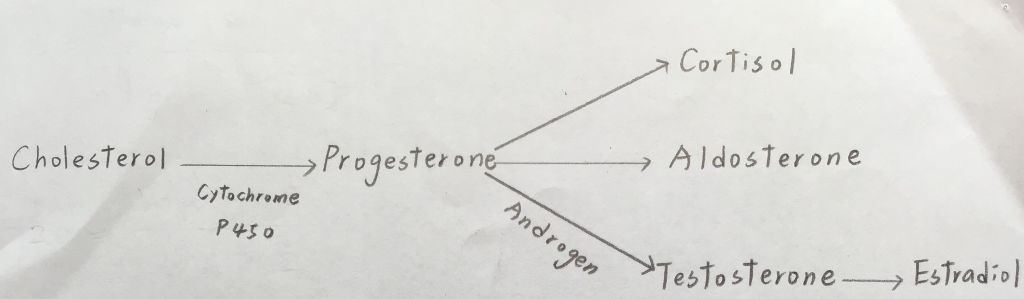 Cortisol
Cholesterol
Progesterone
Aldosterone
Cytochrome
P450
Androgen
Testosterone
Estradiol